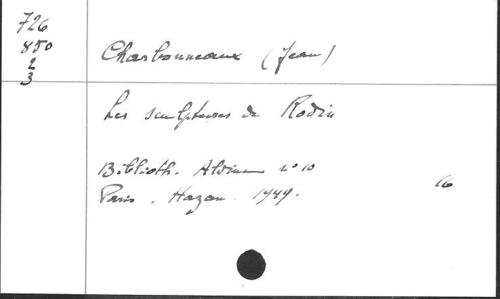 726
850
2
3
Charbonneaux (Jean)
Les sculptures de Rodin
Biblioth. Aldine n° 10
Paris. Hazan. 1949.
16